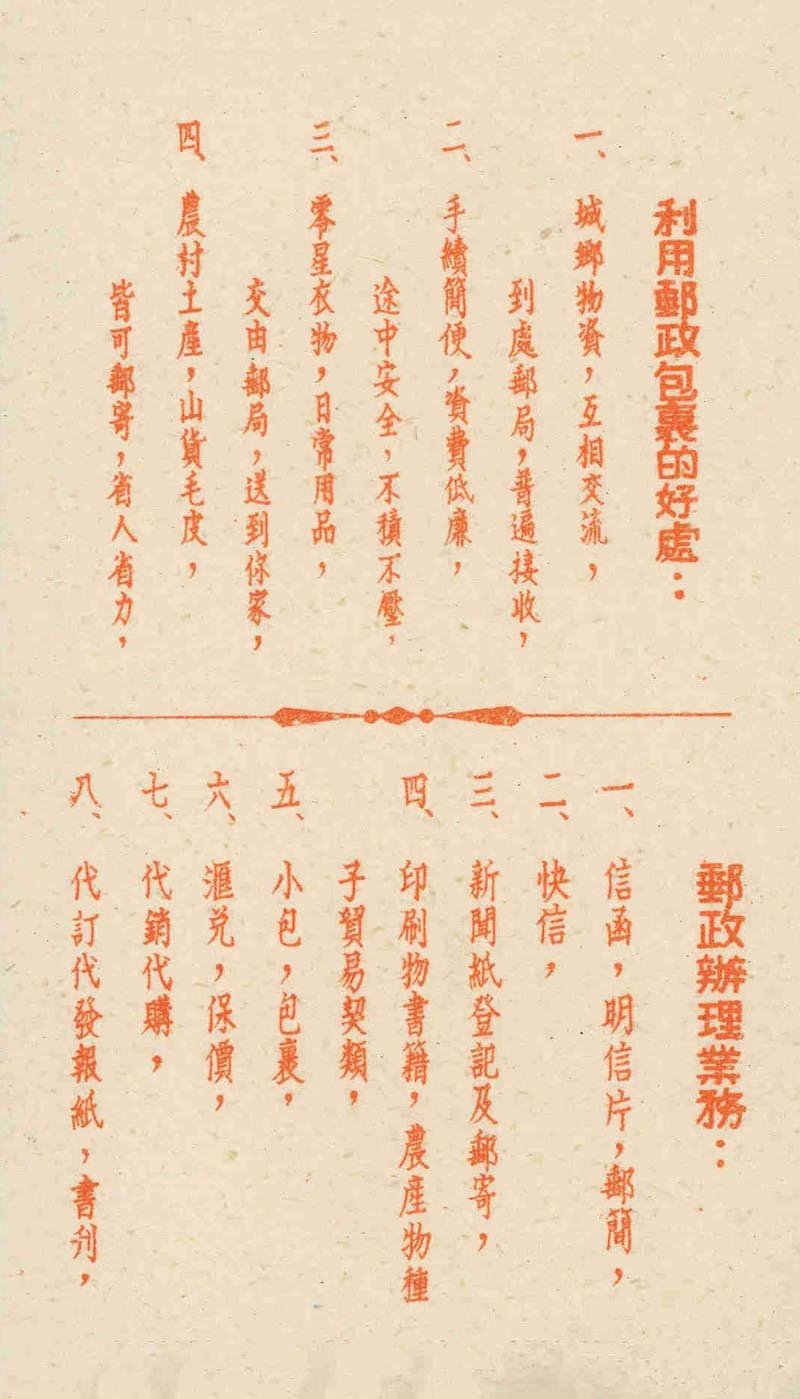 利用郵政包裹的好處：
一、城鄉物資，互相交流，
到處郵局，普遍接收，
二、手續簡便，資費低廉，
途中安全，不積不壓，
三、零星衣物，日常用品，
交由郵局，送到你家，
四、農村土產，山貨毛皮，
皆可郵寄，省人省力，
郵政辦理業務：
一、信函，明信片，郵簡，
二、快信，
三、新聞紙登記及郵寄，
四、印刷物書籍，農產物種
子貿易契類，
五、小包，包裹，
六、滙兌，保價，
七、代銷代購，
八、代訂代發報紙，書刋，